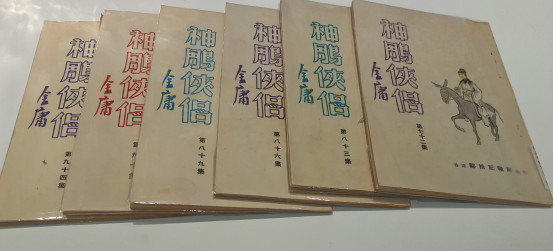 神鵰俠侶
金庸
第九十四集
神鵰俠侶
金庸
神鵰俠侶
金庸
第八十九集
神鵰俠侶
金庸
第八十六集
神鵰俠侶
金庸
第八十三集
神鵰俠侶
金庸
第七十二集